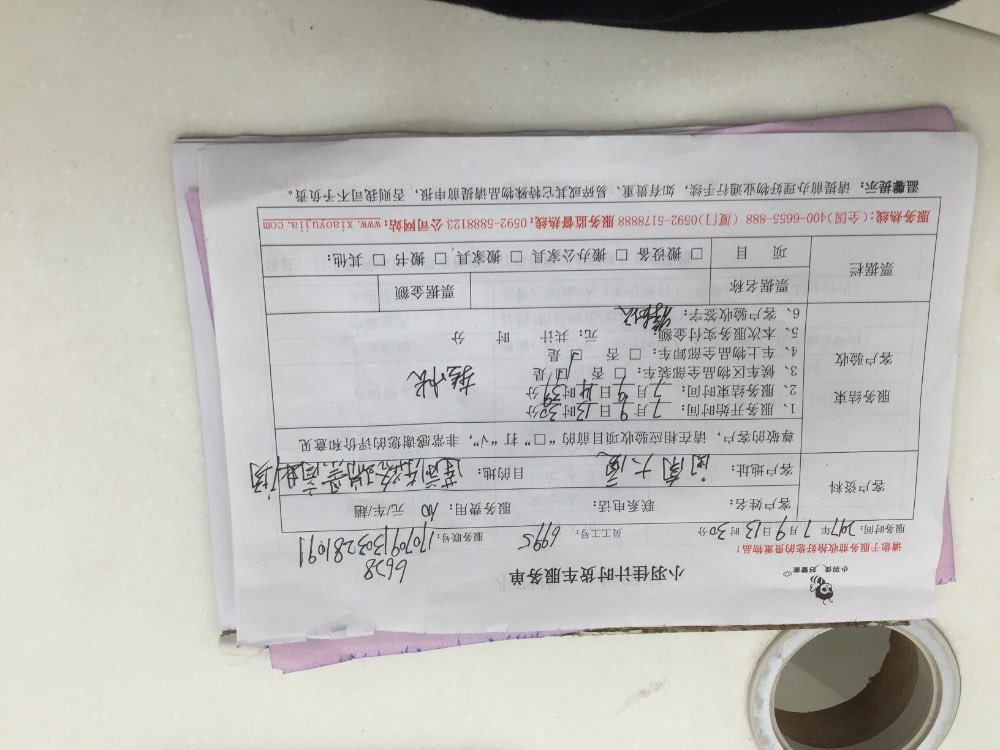 小羽佳 好管家
小羽佳计时货车服务单
6628
请您于服务前收拾好您的贵重物品！
服务时间：2017年7月9日13时30分 员工工号：6995 服务联号：
客户姓名： 联系电话： 服务费用： 元/车/趟
客户资料
客户地址：闽南大厦 目的地：
尊敬的客户，请在相应验收项目前的“□”打“√”，非常感谢您的评价和意见
服务结束
客户验收
1、服务开始时间：7月9日13时30分
2、服务结束时间：7月9日14时39分
3、候候区物品全部装车：□ 否 ☑ 是
4、车上物品全部卸车：□ 否 ☑ 是
5、本次服务实付金额 元；共计 时 分
6、客户验收签字：
票据栏
票据名称 票据金额
项 目 □ 搬设备 □ 搬办公家具 □ 搬家具 □ 搬书 □ 其他：
服务热线：（全国）400-6655-888（厦门）0592-5178888服务监督热线：0592-5888123公司网站：www.xiaoyujia.com
温馨提示： 请提前办理好物业通行手续，如有贵、重、易碎或其它特殊物品请提前申报，否则我司不予负责。